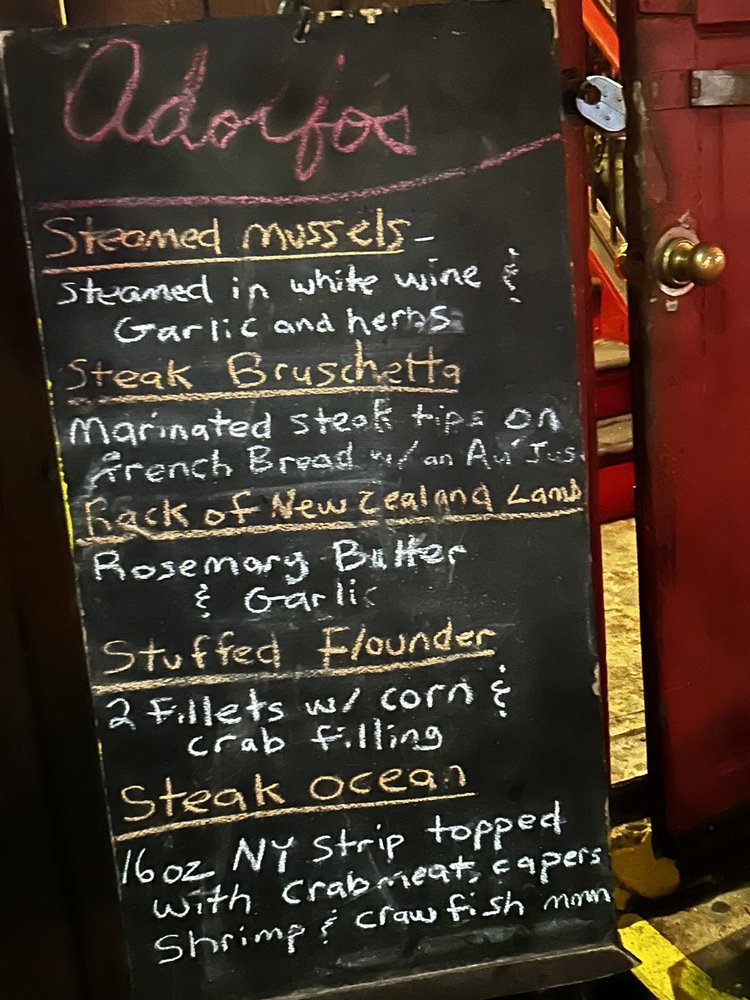 Adolfo's
Steamed mussels -
steamed in white wine &
Garlic and herbs
Steak Bruschetta
Marinated steak tips on
French Bread w/ an Au'Jus.
Rack of New Zealand Lamb
Rosemary Butter
& Garlic
Stuffed Flounder
2 Fillets w/ corn &
crab filling
Steak ocean
16oz NY Strip topped
with crabmeat, capers
Shrimp & crawfish mmm